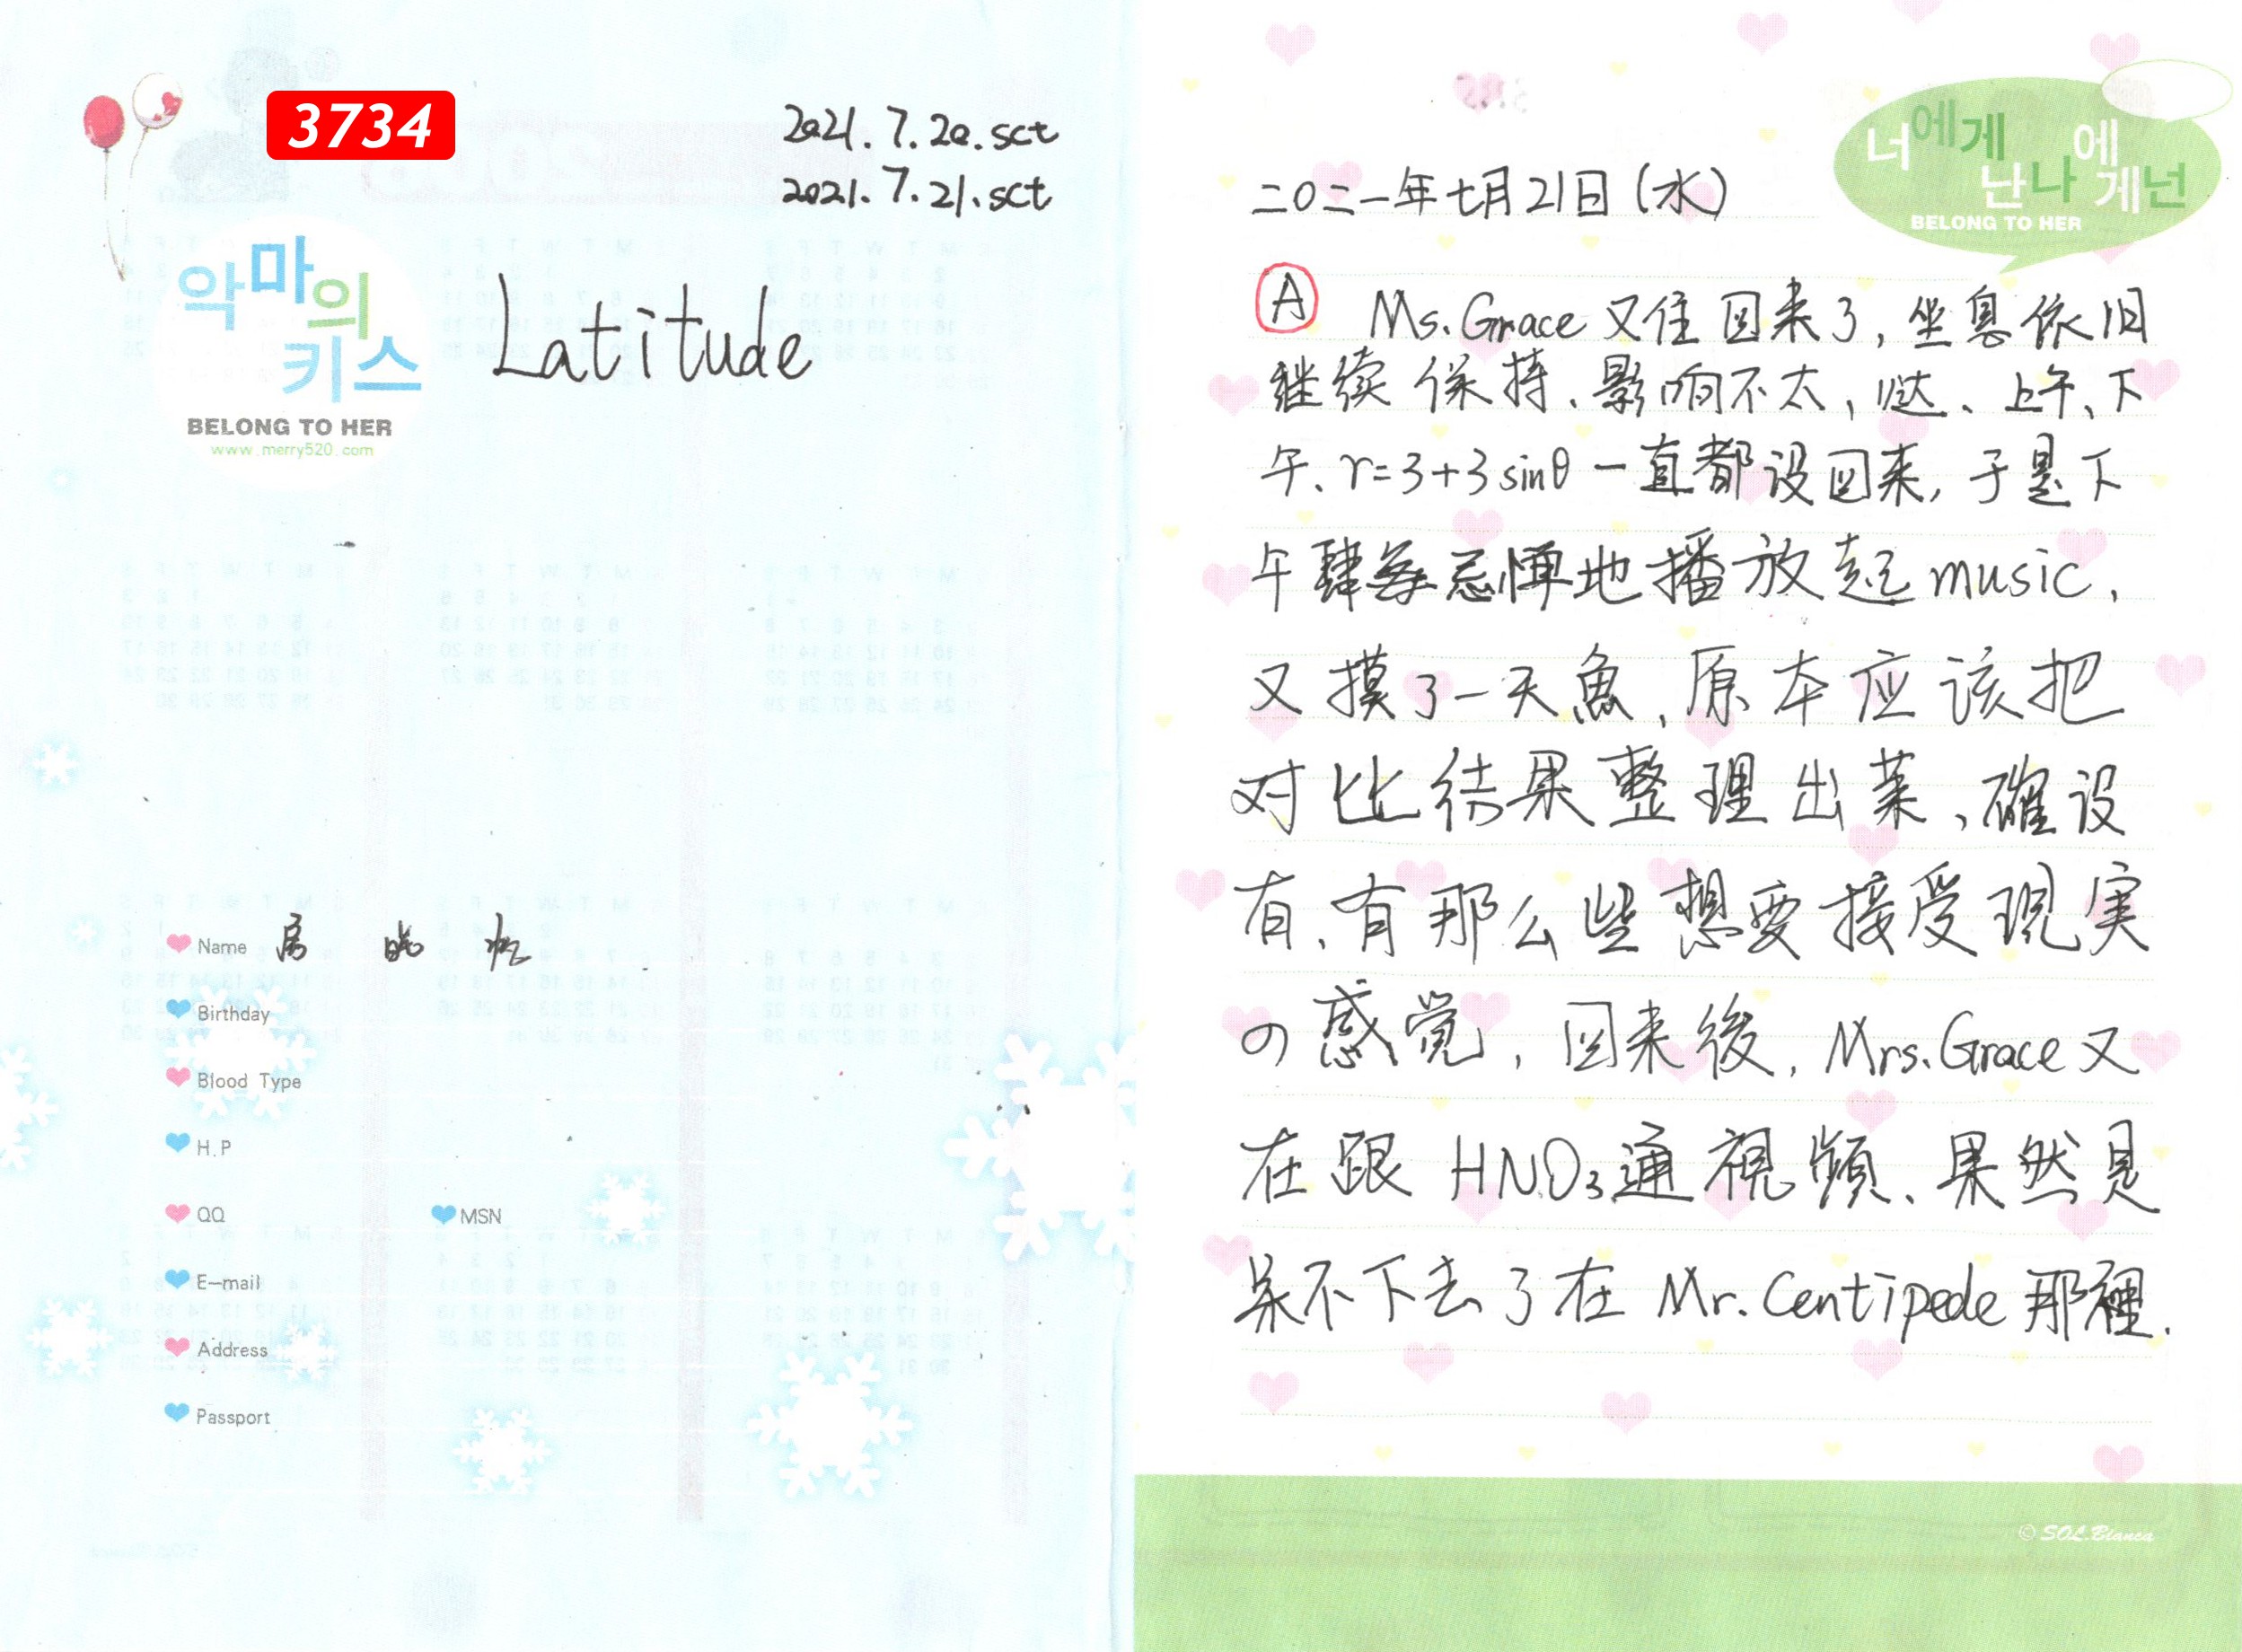 3734
2021.7.20.sct
2021.7.21.sct
악마의
키스
BELONG TO HER
www.merry520.com
Latitude
Name
Birthday
Blood Type
H.P
QQ
MSN
E-mail
Address
Passport
너에게
난나에게넌
BELONG TO HER
二〇二一年七月21日(水)
A Ms.Grace又住回来了,坐息依旧
继续保持、影响不太,哒、上午、下
午、r=3+3sinθ一直都没回来,于是下
午肆無忌惮地播放起music,
又摸了一天魚,原本应该把
对比结果整理出菜,確设
有、有那么些想要接受現实
の感觉,回来後,Mrs.Grace又
在跟HNO₃通視頻、果然是
呆不下去了在Mr.Centipede那裡.
© SOL.Bianca